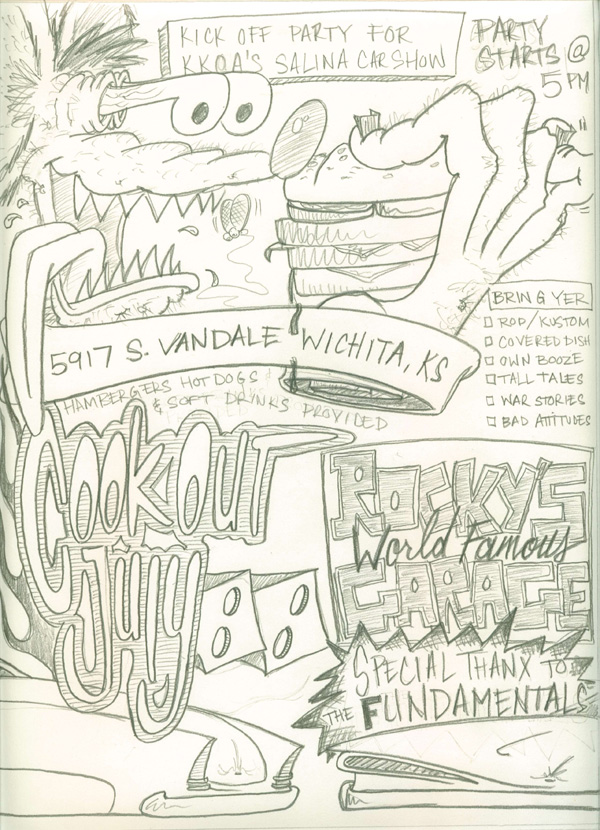 KICK OFF PARTY FOR
KKOA'S SALINA CAR SHOW
PARTY
STARTS @
5 PM
BRING YER
ROD/KUSTOM
COVERED DISH
OWN BOOZE
TALL TALES
WAR STORIES
BAD ATTITUDES
5917 S. VANDALE WICHITA, KS
HAMBERGERS HOT DOGS
& SOFT DRINKS PROVIDED
Cook out
July
ROCKY'S
World Famous
GARAGE
SPECIAL THANX TO
THE FUNDAMENTALS